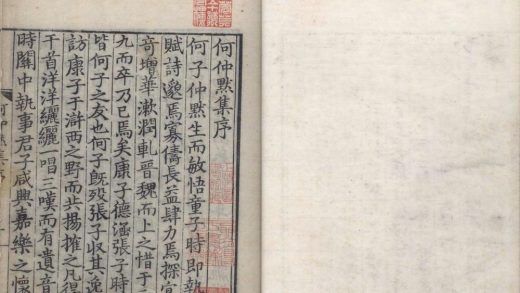 何仲黙集序
何子仲黙生而敏悟童子時即執
賦詩邈焉寡儔長益肆力焉探
奇增華漱潤軋晉魏而上之惜于
九而卒乃已焉矣康子德涵張子時
皆何子之友也何子旣歿張子収其逸
訪康子于滸西之野而共揚搉之凡得
千首洋洋纚纚一唱三嘆而有遺音
時關中執事君子咸興嘉樂之懷